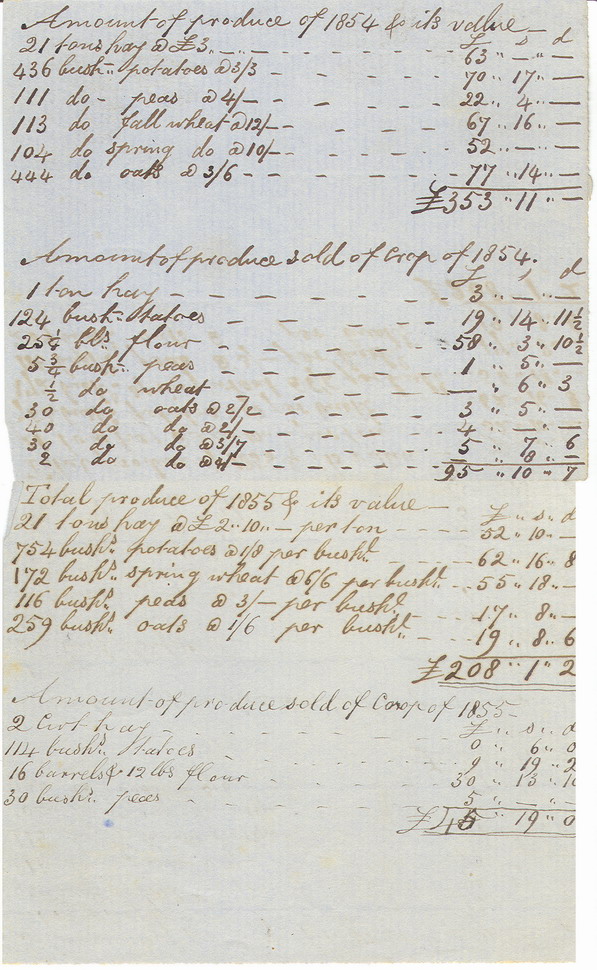 Amount of produce of 1854 & its value —
£ s d
21 tons hay @ £3 „ — „ — 63 „ — „ —
436 bush „ potatoes @ 3/3 — 70 „ 17 „ —
111 do - peas @ 4/ — 22 „ 4 „ —
113 do fall wheat @ 12/ — 67 „ 16 „ —
104 do spring do @ 10/ — 52 „ — „ —
444 do oats @ 3/6 — 77 „ 14 „ —
£353 „ 11 „ —
Amount of produce sold of Crop of 1854.
£ s d
1 ton hay — 3 „ — „ —
124 bush „ tatoes 19 „ 14 „ 11½
25¼ bls flour 58 „ 3 „ 10½
5¾ bush „ peas 1 „ 5 „ —
½ do wheat — „ 6 „ 3
30 do oats @ 2/2 3 „ 5 „ —
40 do do @ 2/- 4 „ — „ —
30 do do @ 3/7 5 „ 7 „ 6
2 do do @ 4/- „ 8 „ —
95 „ 10 „ 7
Total produce of 1855 & its value —
£ „ s „ d
21 tons hay @ £2 „ 10 „ — per ton 52 „ 10 „ —
754 bushs „ potatoes @ 1/8 per bushl 62 „ 16 „ 8
172 bushs „ spring wheat @ 6/6 per bushl 55 „ 18 „ —
116 bushs peas @ 3/ — per bushl 17 „ 8 „ —
259 bushs oats @ 1/6 per bushl 19 „ 8 „ 6
£208 „ 1 „ 2
Amount of produce sold of Crop of 1855 —
£ „ s „ d
2 Cwt hay 0 „ 6 „ 0
114 bushs „ tatoes 9 „ 19 „ 2
16 barrels & 12 lbs flour 30 „ 13 „ 10
30 bushs „ peas 5 „ — „ —
£45 „ 19 „ 0